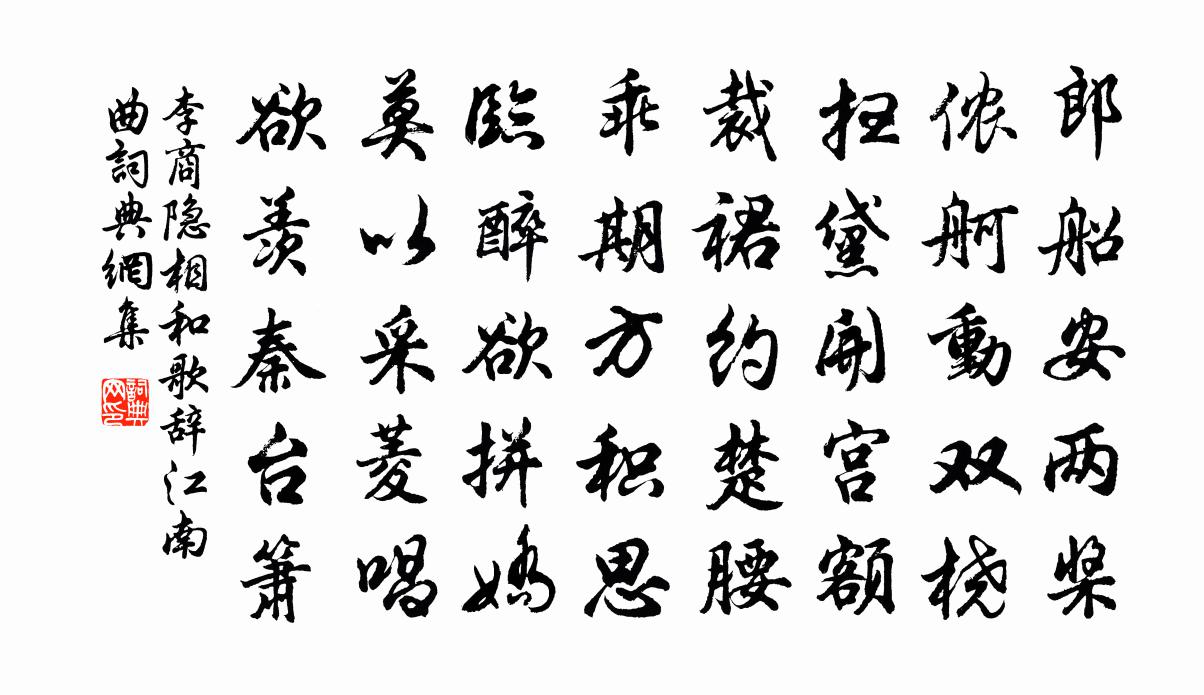 郎船安两桨
侬舸動双桡
扫黛開宫额
裁裙约楚腰
乖期方积思
臨醉欲拼嬌
莫以采菱唱
欲羡秦台箫
李商隐相和歌辞江南
曲詞典網集
詞典
网印